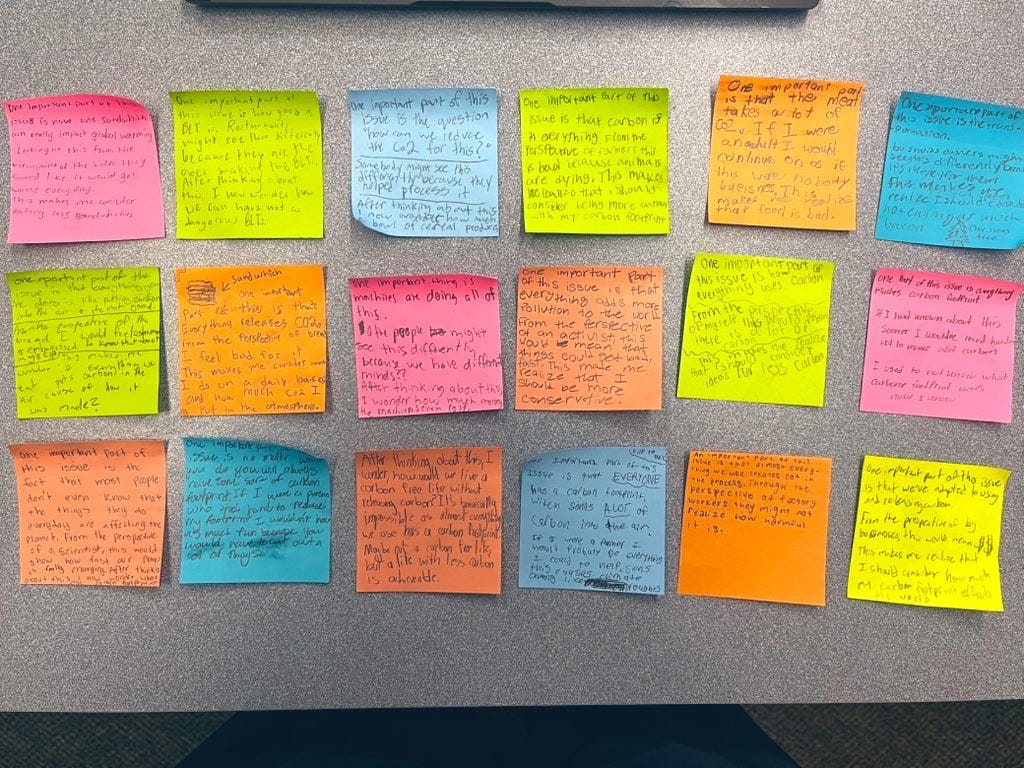 One important part of this
issue is how one sandwhich
can really impact global warming
looking at this from the
viewpoint of the video they
sound like it would get
worse everyday.
this makes me consider
eating less sandwhiches
One important part of
this issue is how good a
BLT is. Restaurants
might see this differently
because they are the
ones making the BLTs.
After thinking about
this, I now wonder how
we can have not as
dangerous BLTs.
One important part of this
issue is the question
"how can we reduce
the Co2 for this?"
Somebody might see this
differently because they
helped process it
After thinking about this
I now wonder how much
bowl of cereal produce
One important Part of this
issue is that carbon is
in everything From the
perspective of farmers this
is bad because animals
are dying. This makes
me realize that i should
consider being more cautious
with my carbon footprint
One important part
is that the meat
takes a lot of
Co2. If I were
an adult I would
continue on as if
this were nobody
buisness. This
makes me realize
that food is bad.
One important part of
this issue is the trans-
portation.
buisness owners might
see this differently because
it's merch for them
this makes me
realize I should consider
not eating as much
bacon
Christmas
tree
One important part of the
issue is that everything you
do is like putting carbon
into the air & its not good.
bread I would feel
This makes me
wonder if everything we
eat puts carbon in the
air cause of how it
was made?
Sandwhich
One important
Part of this is that
Everything releases CO2
From the Perspective of bread
I feel bad for it
This makes me consider what
I do on a daily basies
and how much CO2 I
Put in the atmosphere.
One important thing is
machines are doing all of
this.
Othe people might
see this diffently
because we have different
minds??
After thinking about this
I wonder how much money
the machines even cost.
One important Part
of this issue is that
everything adds more
Pollution to the world.
From the perspective
of an activist this
would mean that
things could get bad,
fast. This made me
realize that I
should be more
conservative.
One important part of
this issue is how
everything uses Carbon
From the Perspective
of myself this would mean
there a lot of
carbon
this makes me realize
that I should consider
ideas for less Carbon
One Part of this issue is everything
makes carbon footprint
If I had known about this
sooner I would've tried harder
not to make add carbon
I used to not know what
carbone footprint was
now I know
One important Part of
this issue is the
fact that most people
don't even know that
the things they do
everyday are affecting the
planet. From the perspective
of a scientist, this would
show how fast our planet
is really changing. After thinking
about this I now wonder what
One important part of this
issue is no matter what
you do you will always
have some sort of carbon
footprint. If I were a person
who tries hard to reduce
my footprint I wouldn't have
as much fun because you
would have to cut out a
lot of theys
After thinking about this, I
wonder, how could we live a
carbon free life without
releasing carbon? It's basically
impossible as almost everything
we use has a carbon footprint.
Maybe not a carbon free life,
but a life with less carbon
is achievable.
FLIP TO BACK
One Important Part of this
Issue is that EVERYONE
has a carbon footprint
wich sents A LOT of
Carbon into the air.
If I were a farmer I
would Probably do everything
I could to help, sens
this causes climate
chang like droughtes
An important Part of this
issue is that almost every-
thing we use creates co2 in
the process. Through the
perspective of factory
workers they might not
realize how harmful
it is.
One important part of this issue
is that we've adapted to using
and releasing carbon
From the prespective of big
buisnesses this would mean $$
This makes me realize that
I should consider how much
my carbon footprint effects
the world